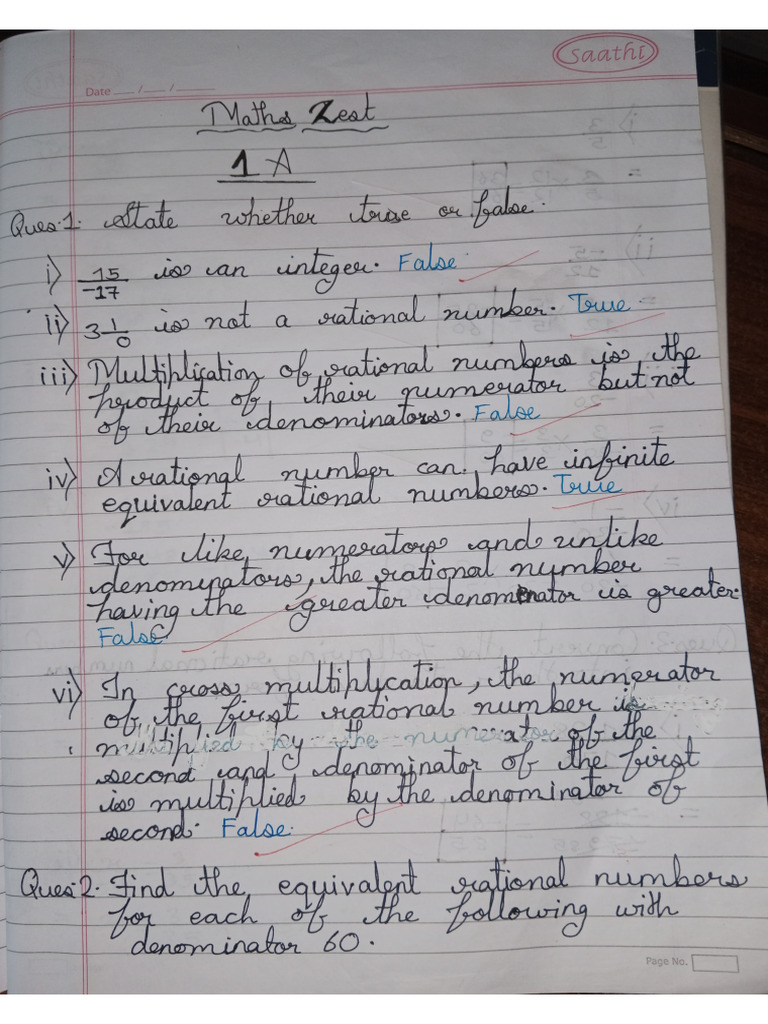 Saathi
Date ___ / ___ / ___
Maths Zest
1 A
Ques:1. State whether true or false.
i) 15/-17 is an integer. False.
ii) 3 1/0 is not a rational number. True.
iii) Multiplication of rational numbers is the
product of their numerator but not
of their denominators. False
iv) A rational number can have infinite
equivalent rational numbers. True
v) For like numerators and unlike
denominators, the rational number
having the greater denominator is greater.
False
vi) In cross multiplication, the numerator
of the first rational number is
multiplied by the numerator of the
second and denominator of the first
is multiplied by the denominator of
second. False.
Ques:2. Find the equivalent rational numbers
for each of the following with
denominator 60.
Page No.